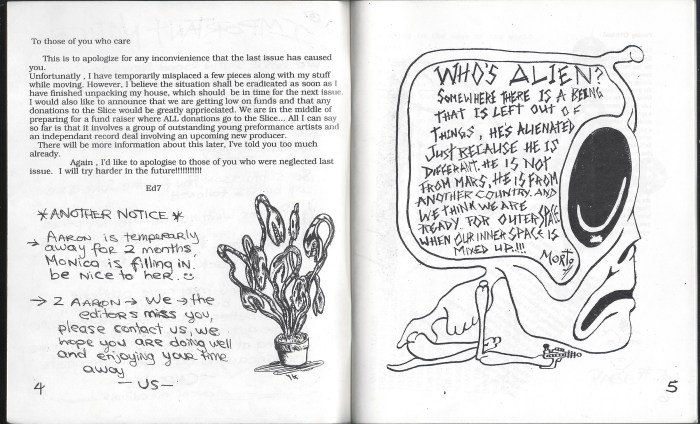 To those of you who care
This is to apologize for any inconvienience that the last issue has caused
you.
Unfortunatly , I have temporarily misplaced a few pieces along with my stuff
while moving. However, I believe the situation shall be eradicated as soon as I
have finished unpacking my house, which should be in time for the next issue.
I would also like to announce that we are getting low on funds and that any
donations to the Slice would be greatly appreciated. We are in the middle of
preparing for a fund raiser where ALL donations go to the Slice... All I can say
so far is that it involves a group of outstanding young preformance artists and
an independant record deal involving an upcoming new producer.
There will be more information about this later, I've told you too much
already.
Again , I'd like to apologise to those of you who were neglected last
issue. I will try harder in the future!!!!!!!!!!!
Ed7
* ANOTHER NOTICE *
→ AARON is temperarly
away for 2 months,
Monica is filling in.
be nice to her. ☺
→ 2 AARON → We → the
editors miss you,
please contact us, we
hope you are doing well
and enjoying your time
away
— US —
4
WHO'S ALIEN?
SOMEWHERE THERE IS A BEING
THAT IS LEFT OUT OF
THINGS, HE'S ALIENATED
JUST BECAUSE HE IS
DIFFERANT. HE IS NOT
FROM MARS, HE IS FROM
ANOTHER COUNTRY. AND
WE THINK WE ARE
READY FOR OUTER SPACE
WHEN OUR INNER SPACE IS
MIXED UP.!!!
5